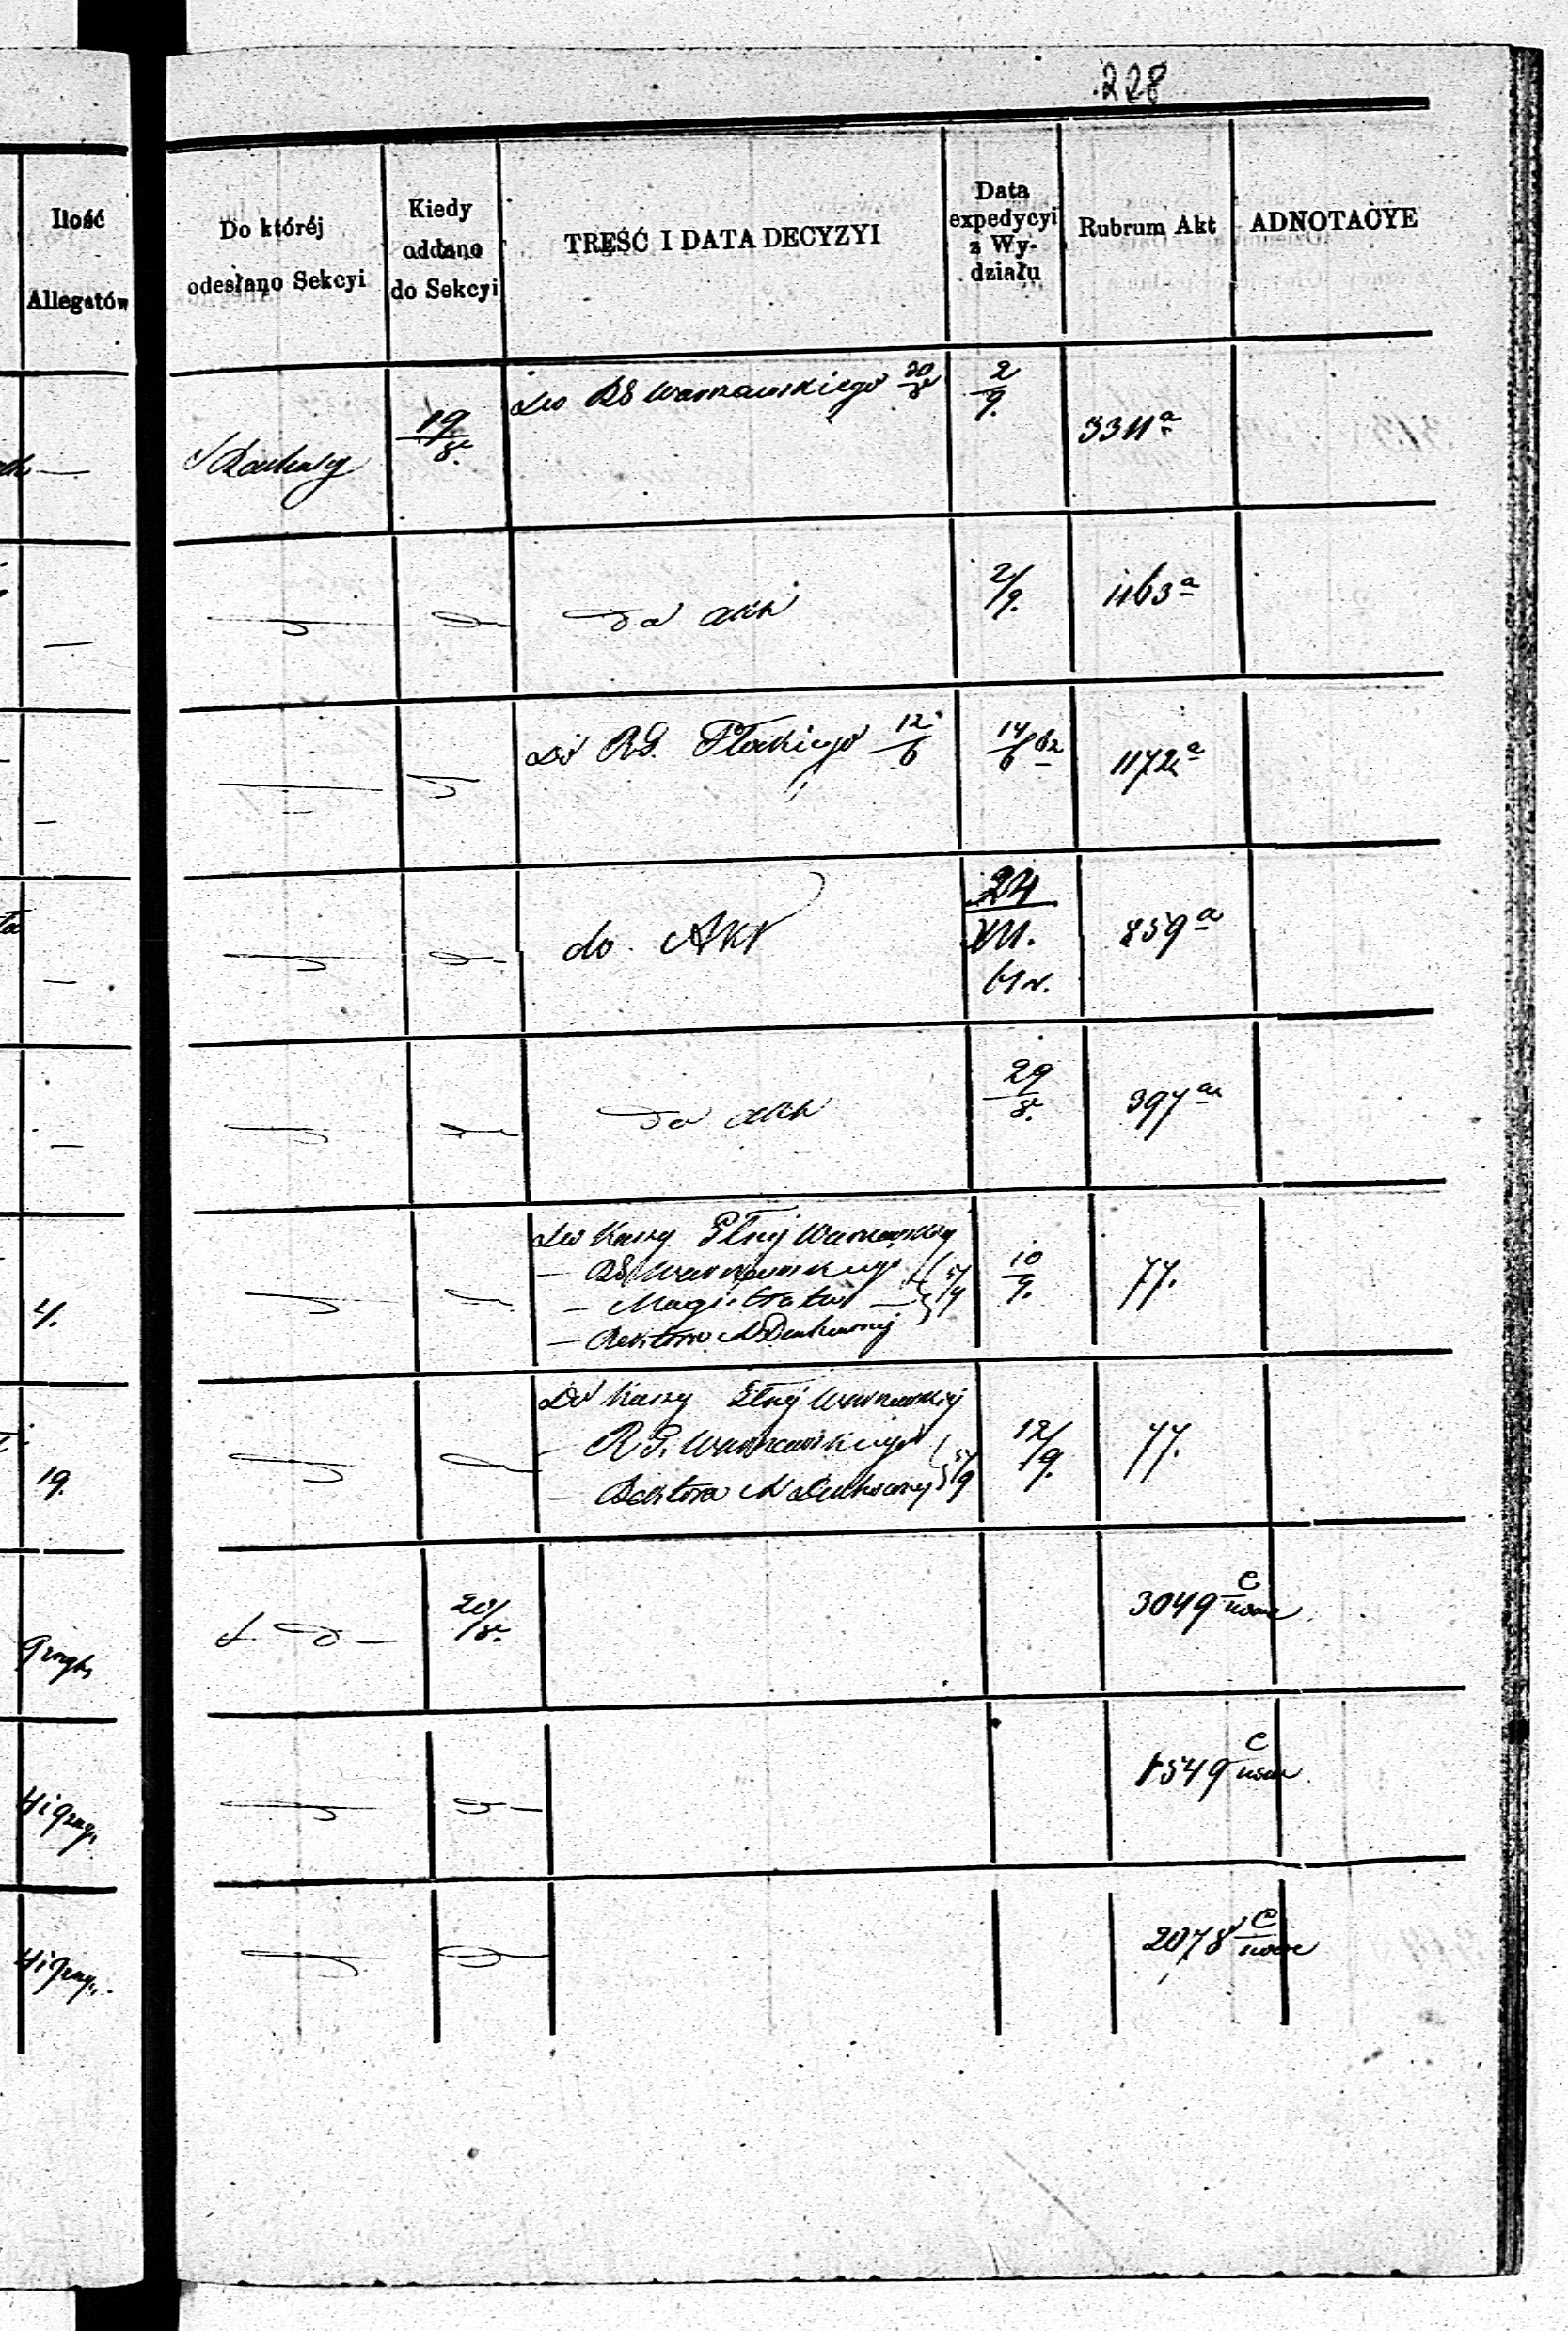 228
Ilość
Allegatów
Do któréj
odesłano Sekcyi
Kiedy
oddano
do Sekcyi
TREŚĆ I DATA DECYZYI
Data
expedycyi
z Wy-
działu
Rubrum Akt
ADNOTACYE
19/8
Do RG Warszawskiego 30/8
2/9.
3311 a
—
do akt
2/9.
1163 a
—
Do RG. Płockiego 12/6
14/6 62
1172 a
—
do Akt
24
VII.
859 a
—
do akt
29/8.
397
4.
Do Kassy Głnej Warszawskiej
— RG Warszawskiego
— Magistratu — 5/9
— Rektora
10/9.
77.
19.
Do Kassy Głnej Warszawskiej
— R.G. Warszawskiego
— Rektora 5/9
12/9.
77.
20/8.
3049 c
1549 c
2078 c